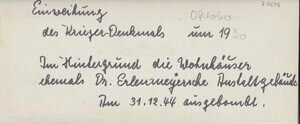 Einweihung Oktober
des Krieger-Denkmals um 1930
Im Hintergrund die Wohnhäuser
ehemals Dr. Erlenmeyersche Anstaltgebäude
Am 31.12.44 ausgebombt.